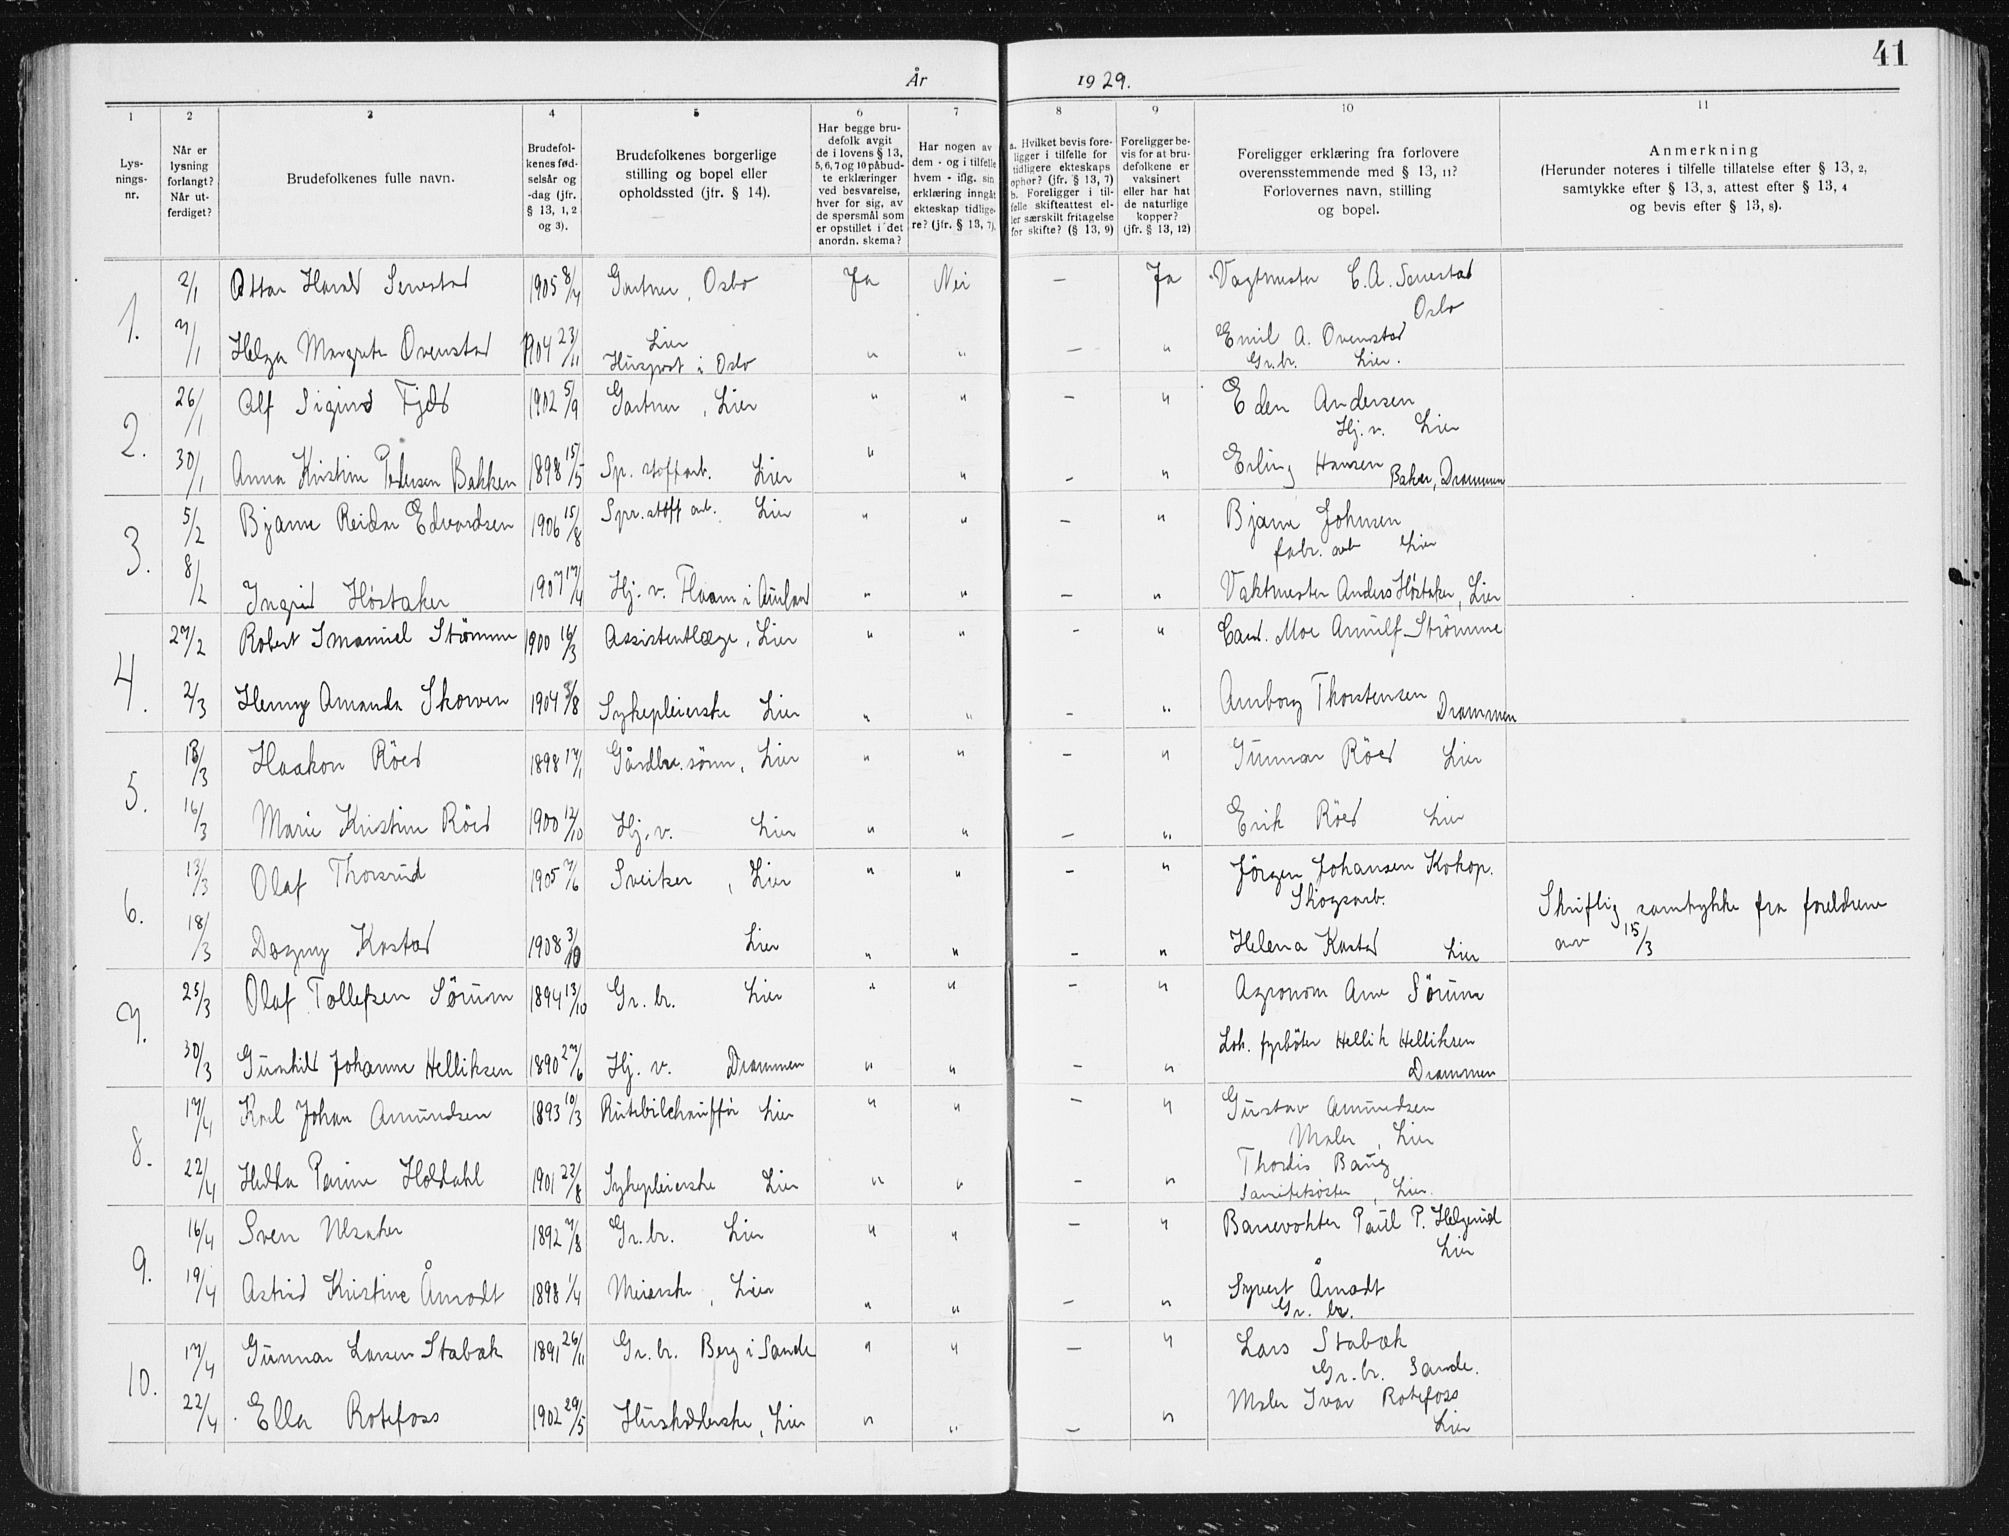 41
År 1929.
1 2 3 4 5 6 7 8 9 10 11
Lys-
nings-
nr.
Når er
lysning
forlangt?
Når ut-
ferdiget?
Brudefolkenes fulle navn.
Brudefol-
kenes fød-
selsår og
-dag (jfr.
§ 13, 1, 2
og 3).
Brudefolkenes borgerlige
stilling og bopel eller
opholdssted (jfr. § 14).
Har begge bru-
defolk avgit
de i lovens § 13,
5, 6, 7 og 10 påbud-
te erklæringer
ved besvarelse,
hver for sig, av
de spørsmål som
er opstillet i det
anordn. skema?
Har nogen av
dem - og i tilfelle
hvem - iflg. sin
erklæring inngåt
ekteskap tidlige-
re? (jfr. § 13, 7).
a. Hvilket bevis fore-
ligger i tilfelle for
tidligere ekteskaps
ophør? (jfr. § 13, 7)
b. Foreligger i til-
felle skifteattest el-
ler særskilt fritagelse
for skifte? (§ 13, 9)
Foreligger be-
vis for at bru-
defolkene er
vaksinert
eller har hat
de naturlige
kopper?
(jfr. § 13, 12)
Foreligger erklæring fra forlovere
overensstemmende med § 13, 11?
Forlovernes navn, stilling
og bopel.
Anmerkning
(Herunder noteres i tilfelle tillatelse efter § 13, 2,
samtykke efter § 13, 3, attest efter § 13, 4
og bevis efter § 13, 8).
1. 2/1 Ottar Harald Senestad 1905 8/4 Gartner, Oslo Ja Nei — Ja Vagtmester C. A. Senestad
Oslo
7/1 Helga Margrete Ovenstad 1904 23/11 Lier
Huspost i Oslo " " — " Emil A. Ovenstad
Gr.br. Lier.
2. 26/1 Alf Sigurd Fjeld 1902 5/9 Gartner, Lier " " — " Eden Andersen
Hj. v. Lier
30/1 Anna Kristine Pedersen Bakken 1898 15/5 Sp. stoffarb. Lier " " — " Erling Hansen
Baker, Drammen
3. 5/2 Bjarne Reidar Edvardsen 1906 15/8 Spr. stoff arb. Lier " " — " Bjarne Johnsen
fabr. arb Lier
8/2 Ingrid Høstaker 1907 17/4 Hj. v. Flaam i Aurland " " — " Vaktmester Anders Høstaker, Lier
4. 27/2 Robert Imanuel Strømme 1900 16/3 Assistentlæge, Lier " " — " Cand. Moe Arnulf Strømme
2/3 Henny Amanda Skorven 1904 3/8 Sykepleierske Lier " " — " Arnborg Thorstensen
Drammen
5. 13/3 Haakon Röed 1898 17/1 Gårdbr. sønn, Lier " " — " Gunnar Röed Lier
16/3 Marie Kristine Röed 1900 12/10 Hj. v. Lier " " — " Erik Röed Lier
6. 13/3 Olaf Thorsrud 1905 7/6 Sveitser, Lier " " — " Jörgen Johansen Kokop.
Skogsarb.
18/3 Dagny Kastad 1908 3/10 Lier " " — " Helena Kastad Lier
Skriftlig samtykke fra foreldrene
av 15/3
7. 25/3 Olaf Tollefsen Sörum 1894 13/10 Gr. br. Lier " " — " Agronom Arne Sörum
30/3 Gunhild Johanne Helliksen 1890 27/6 Hj. v. Drammen " " — " Lok. fyrböter Hellik Helliksen
Drammen
8. 17/4 Karl Johan Amundsen 1893 10/3 Rutebilchauffør Lier " " — " Gustav Amundsen
Maler, Lier
22/4 Hulda Perine Holdahl 1901 22/8 Sykepleierske Lier " " — " Thordis Baug
Sanitetsöster, Lier.
9. 16/4 Sven Ulsaker 1892 7/8 Gr. br. Lier " " — " Banevokter Paul P. Helgerud
Lier
19/4 Astrid Kristine Åmodt 1898 1/4 Meierske, Lier " " — " Syvert Åmodt
Gr. br.
10. 17/4 Gunnar Larsen Stabæk 1891 26/11 Gr. br. Berg i Sande " " — " Lars Stabæk
Gr. br. Sande.
22/4 Ella Rotefoss 1902 29/5 Husholderske, Lier " " — " Maler Ivar Rotefoss
Lier